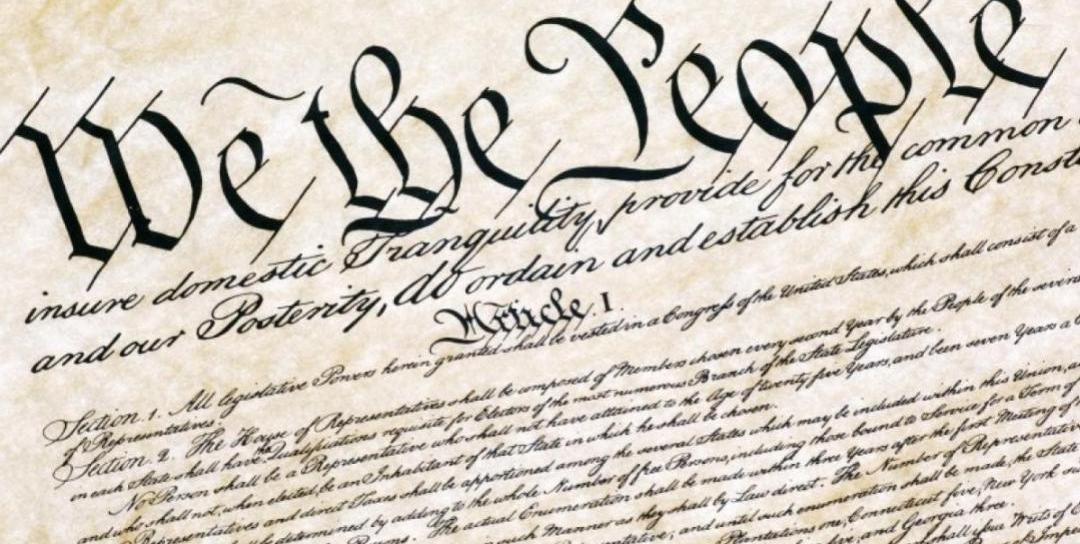 We the People
insure domestic Tranquility, provide for the common
and our Posterity, do ordain and establish this Const
Article. I.
Section. 1. All legislative Powers herein granted shall be vested in a Congress of the United States, which shall consist of a
of Representatives.
Section. 2. The House of Representatives shall be composed of Members chosen every second Year by the People of the several
in each State shall have the Qualifications requisite for Electors of the most numerous Branch of the State Legislature.
No Person shall be a Representative who shall not have attained to the Age of twenty five Years, and been seven Years a
and who shall not, when elected, be an Inhabitant of that State in which he shall be chosen.
Representatives and direct Taxes shall be apportioned among the several States which may be included within this Union,
determined by adding to the whole Number of free Persons, including those bound to Service for a Term of
The actual Enumeration shall be made within three Years after the first Meeting of
such Manner as they shall by Law direct. The Number of Representatives
and until such enumeration shall be made, the State
Plantations one, Connecticut five, New York
five, and Georgia three.
shall issue Writs of